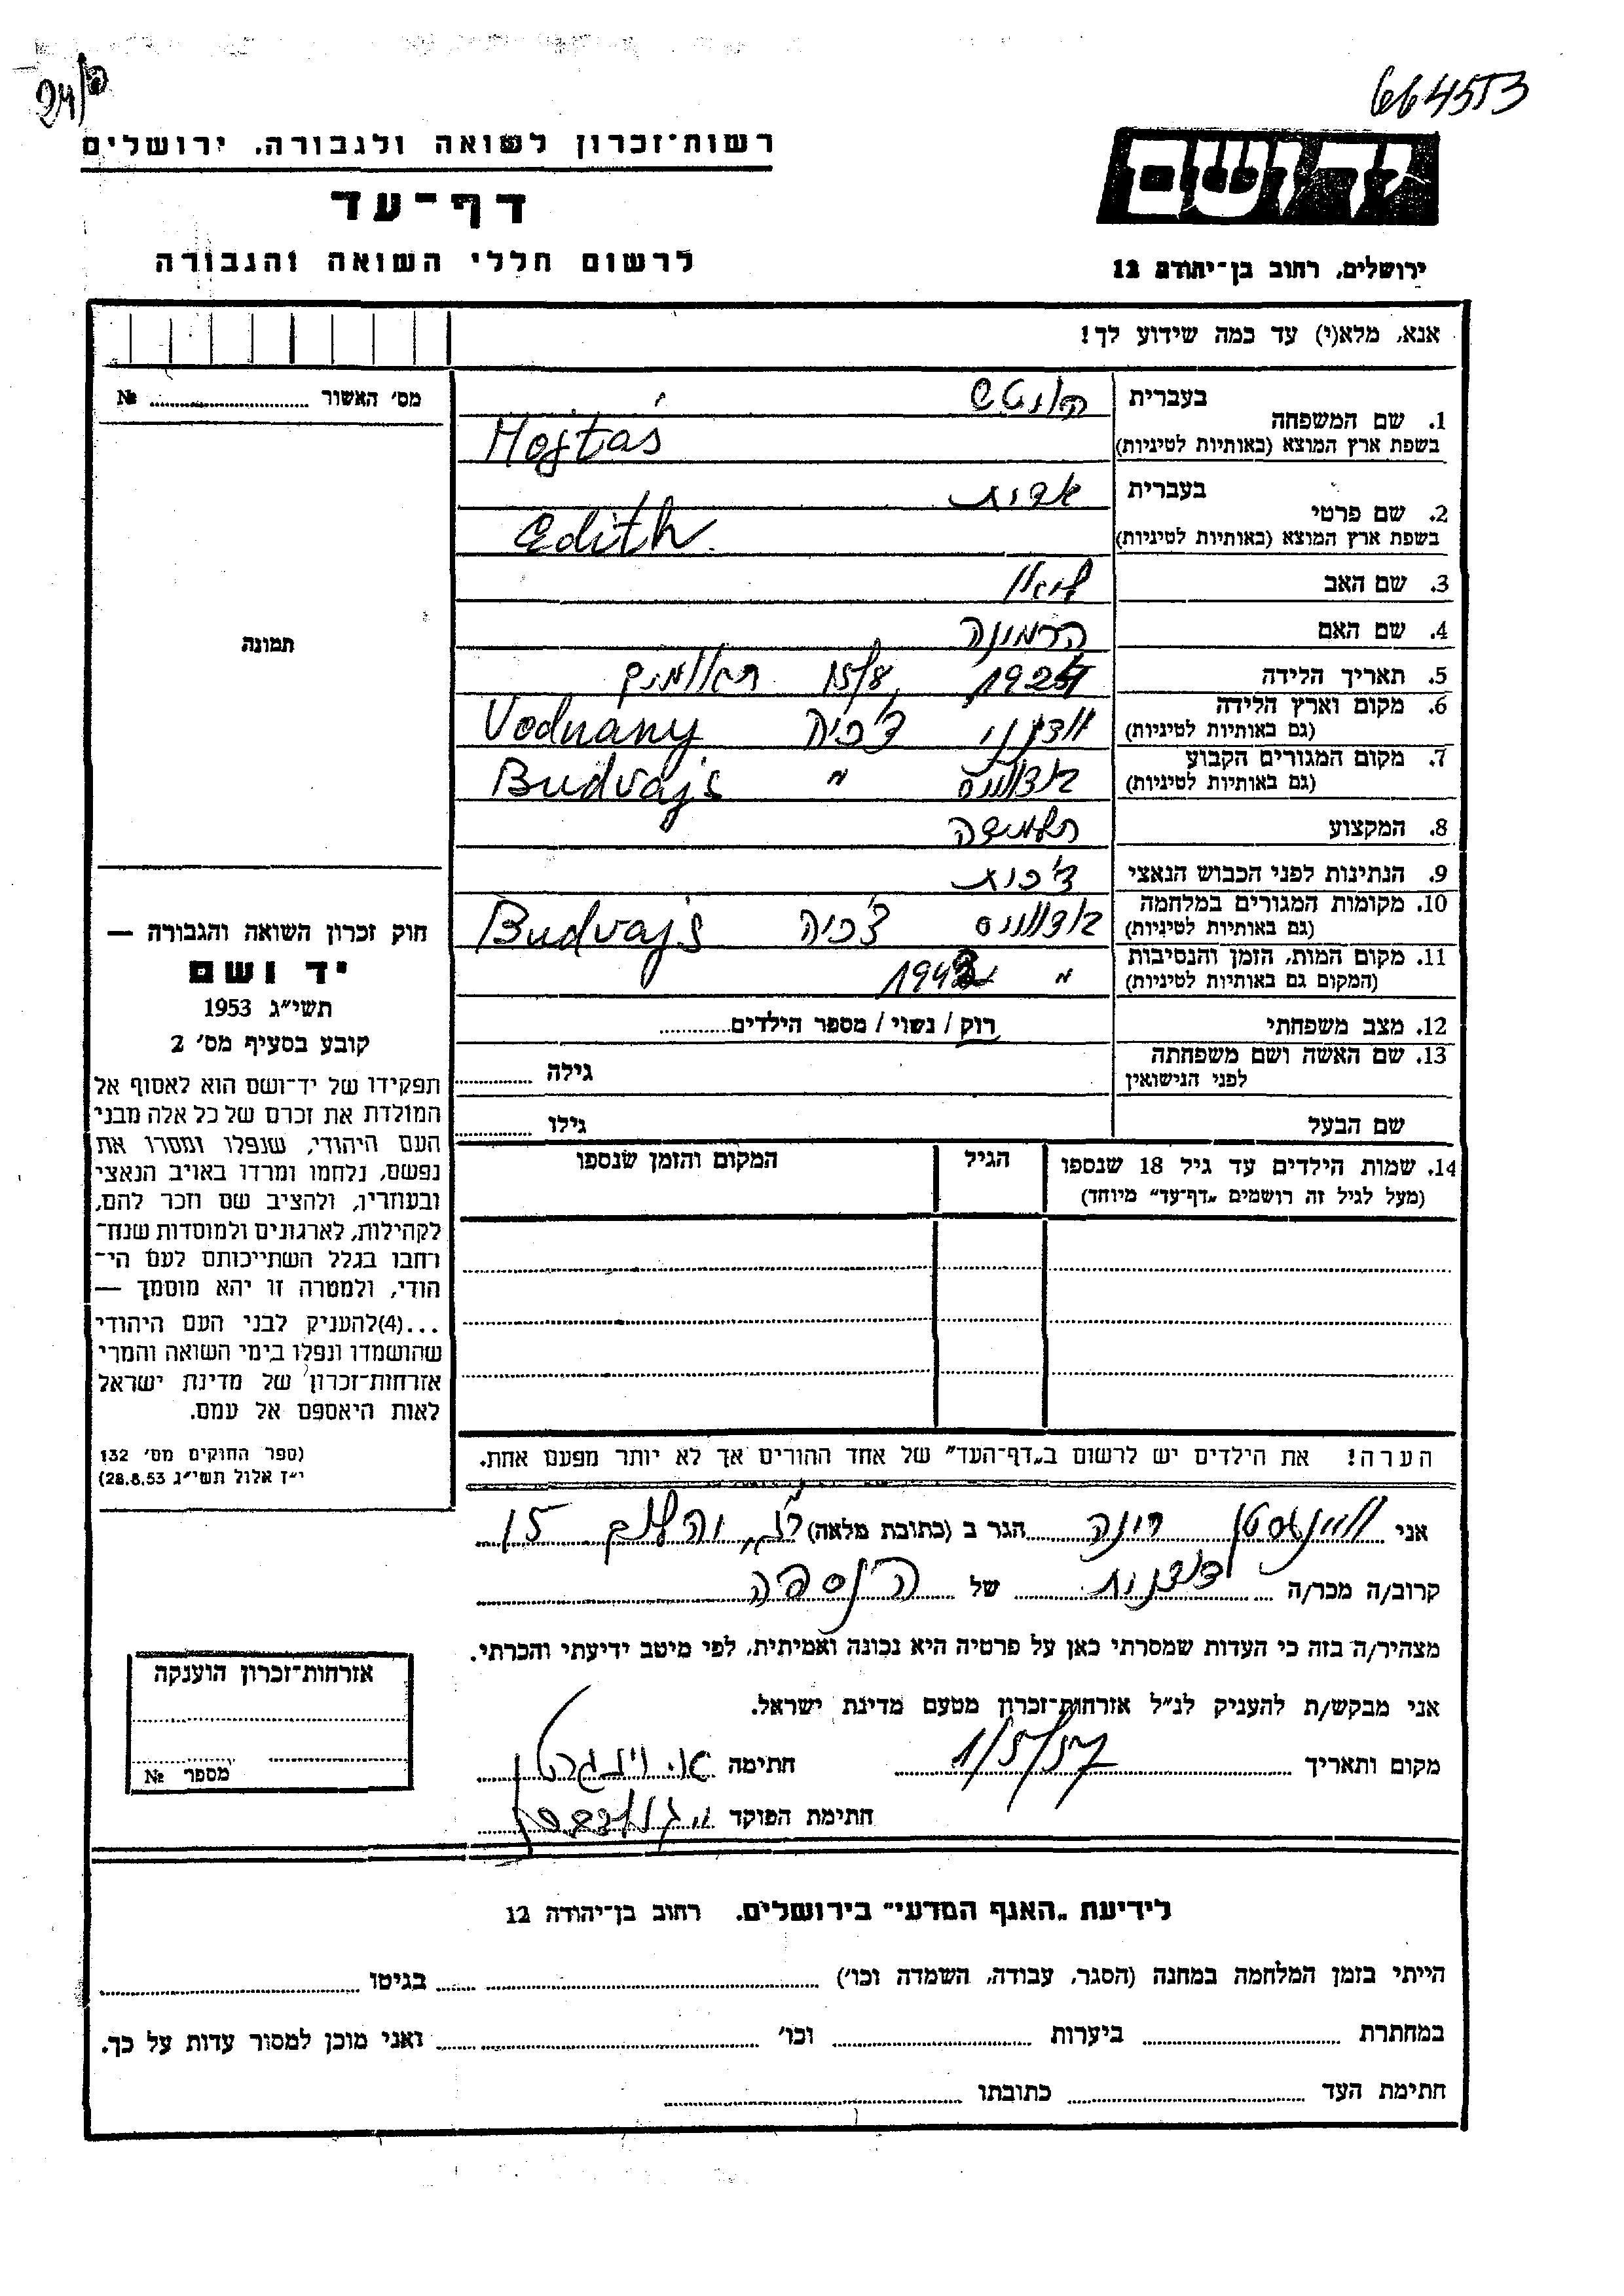 פ/24
664553
רשות־זכרון לשואה ולגבורה. ירושלים
דף־עד
לרשום חללי השואה והגבורה
יד ושם
ירושלים, רחוב בן־יהודה 12
אנא, מלא(י) עד כמה שידוע לך!
מס׳ האשור № 
תמונה
1. שם המשפחה
בעברית
בשפת ארץ המוצא (באותיות לטיניות) Hojtás
2. שם פרטי
בעברית אדית
בשפת ארץ המוצא (באותיות לטיניות) Edith
3. שם האב
4. שם האם הרמינה
5. תאריך הלידה 1924 15/8
6. מקום וארץ הלידה
(גם באותיות לטיניות) צ׳כיה Vodnany
7. מקום המגורים הקבוע
(גם באותיות לטיניות) " Budvajs
8. המקצוע תלמידה
9. הנתינות לפני הכבוש הנאצי צ׳כית
10. מקומות המגורים במלחמה
(גם באותיות לטיניות) צ׳כיה Budvajs
11. מקום המות, הזמן והנסיבות
(המקום גם באותיות לטיניות) "
12. מצב משפחתי רוק / נשוי / מספר הילדים
13. שם האשה ושם משפחתה
לפני הנישואין גילה
שם הבעל גילו
14. שמות הילדים עד גיל 18 שנספו
(מעל לגיל זה רושמים „דף־עד״ מיוחד)
הגיל
המקום והזמן שנספו
הערה! את הילדים יש לרשום ב„דף־העד״ של אחד ההורים אך לא יותר מפעם אחת.
חוק זכרון השואה והגבורה —
יד ושם
תשי״ג 1953
קובע בסעיף מס׳ 2
תפקידו של יד־ושם הוא לאסוף אל
המולדת את זכרם של כל אלה מבני
העם היהודי, שנפלו ומסרו את
נפשם, נלחמו ומרדו באויב הנאצי
ובעוזריו, ולהציב שם וזכר להם,
לקהילות, לארגונים ולמוסדות שנח־
רחבו בגלל השתייכותם לעם הי־
הודי, ולמטרה זו יהא מוסמך —
...(4)להעניק לבני העם היהודי
שהושמדו ונפלו בימי השואה והמרי
אזרחות־זכרון של מדינת ישראל
לאות היאספם אל עמם.
(ספר החוקים מס׳ 132
י״ז אלול תשי״ג 28.8.53)
אני הגר ב (כתובת מלאה) 15
קרוב/ה מכר/ה של הנספה
מצהיר/ה בזה כי העדות שמסרתי כאן על פרטיה היא נכונה ואמיתית, לפי מיטב ידיעתי והכרתי.
אני מבקש/ת להעניק לנ״ל אזרחות־זכרון מטעם מדינת ישראל.
מקום ותאריך 1/5/57 חתימה
חתימת הפוקד
אזרחות־זכרון הוענקה
מספר №
לידיעת „האגף המדעי״ בירושלים. רחוב בן־יהודה 12
הייתי בזמן המלחמה במחנה (הסגר, עבודה, השמדה וכו׳) בגיטו
במחתרת ביערות וכו׳ ואני מוכן למסור עדות על כך.
חתימת העד כתובתו